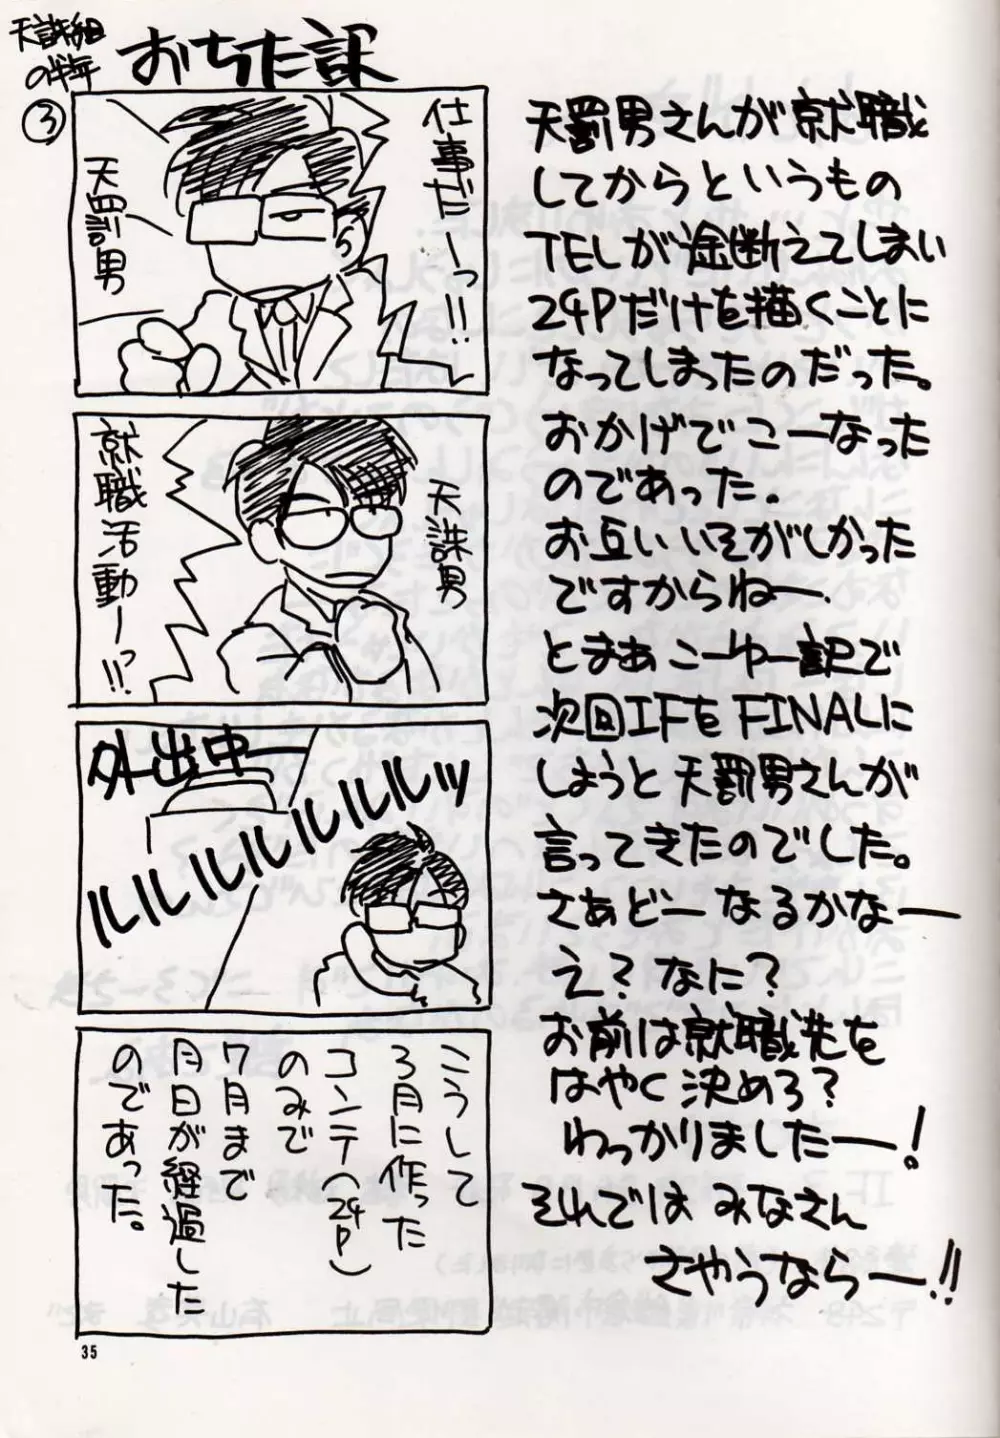 天誅組
の半年
おちた訳
③
仕事だーっ!!
天罰男
天誅男
就職活動ーっ!!
外出中
ルルルルルルルルッ
こうして
3月に作った
コンテ(24P)
のみで
7月まで
月日が経過した
のであった。
天罰男さんが就職
してからというもの
TELが途断えてしまい
24Pだけを描くことに
なってしまったのだった。
おかげでこーなった
のであった.
お互いいそがしかった
ですからねー.
とまあこーゆー訳で
次回IFをFINALに
しようと天罰男さんが
言ってきたのでした。
さあどーなるかなー
え?なに?
お前は就職先を
はやく決めろ?
わっかりましたー!
それではみなさん
さやうならー!!
35